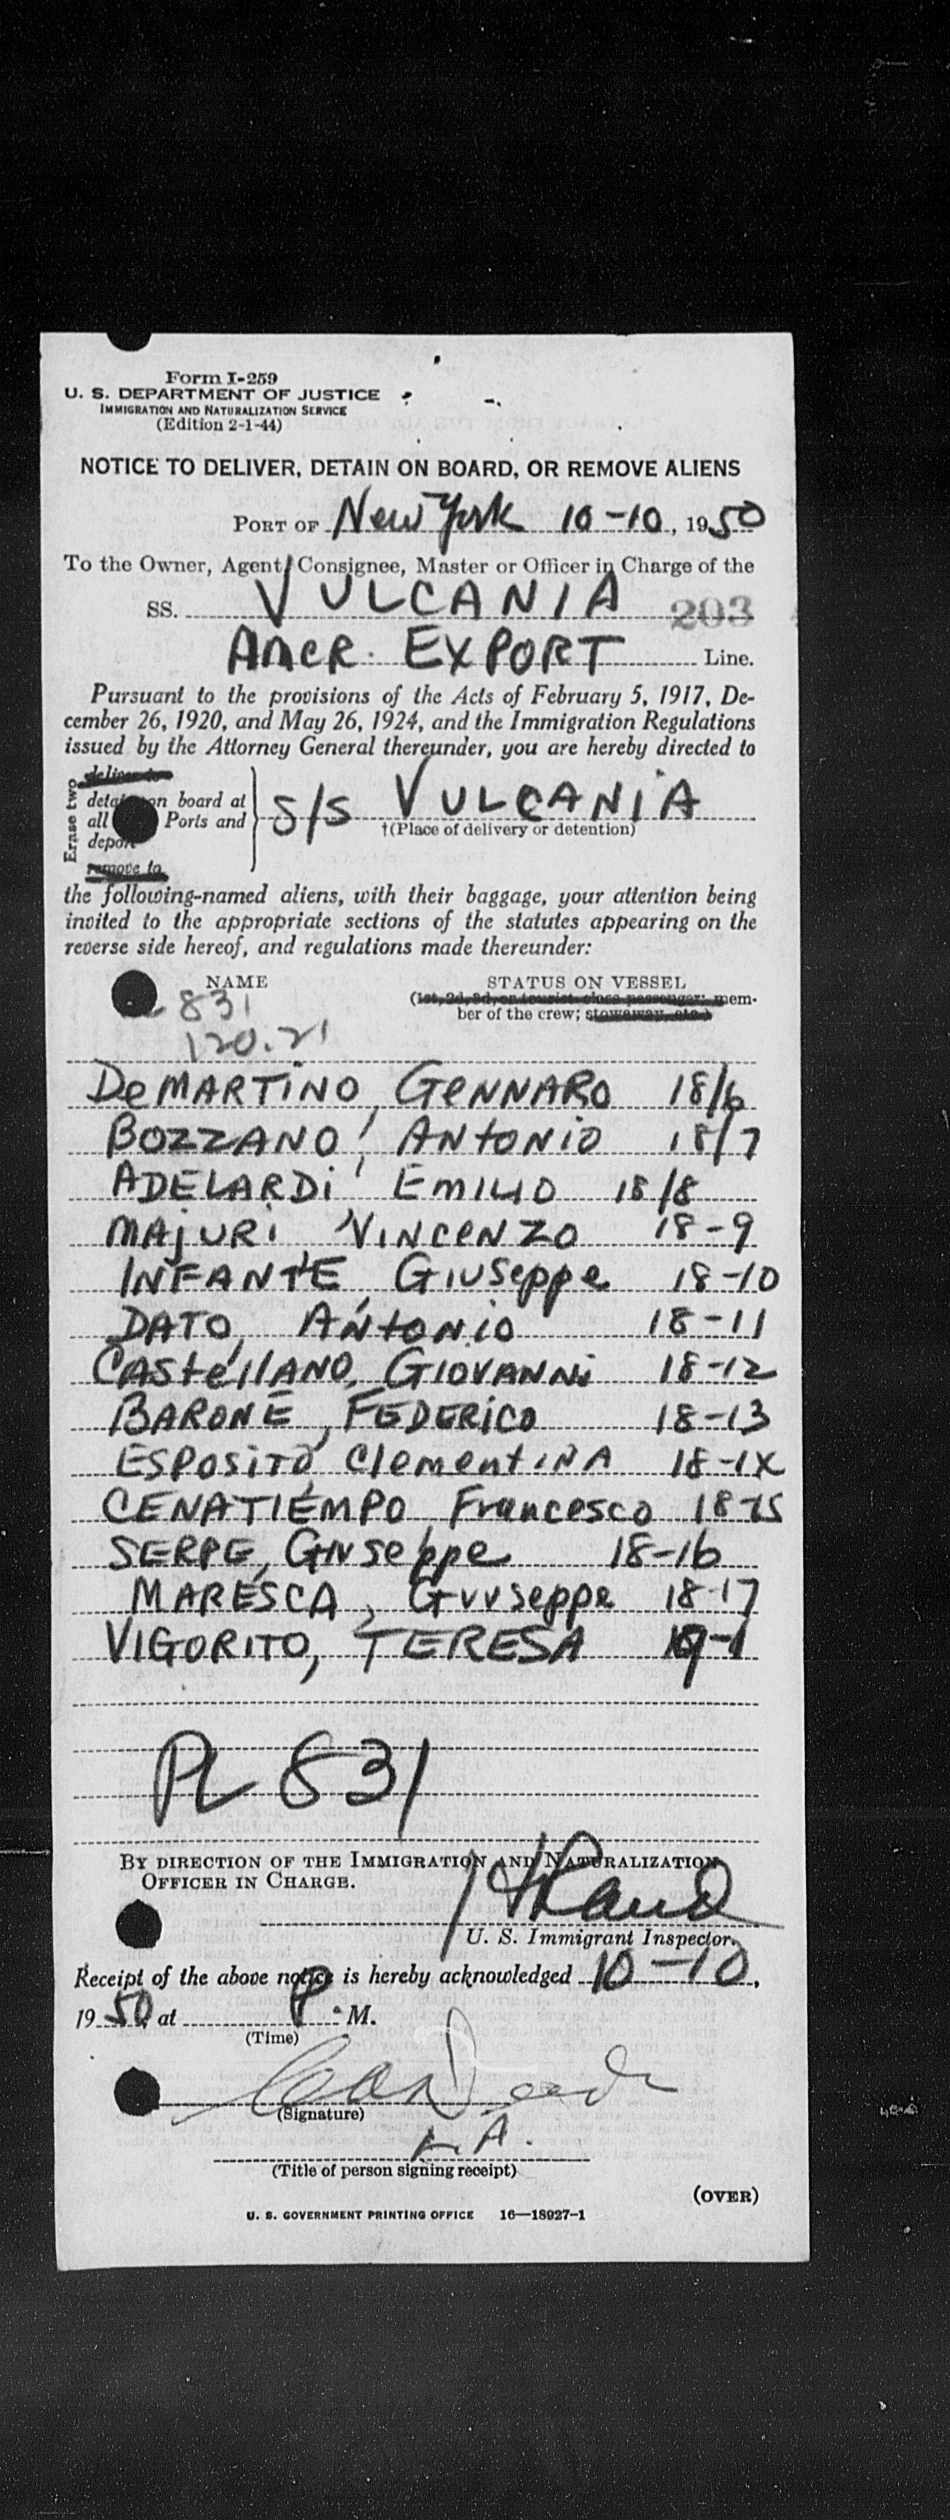 Form I-259
U. S. DEPARTMENT OF JUSTICE
IMMIGRATION AND NATURALIZATION SERVICE
(Edition 2-1-44)
NOTICE TO DELIVER, DETAIN ON BOARD, OR REMOVE ALIENS
PORT OF New York 10-10, 1950
To the Owner, Agent, Consignee, Master or Officer in Charge of the
SS. VULCANIA 203
AMER. EXPORT Line.
Pursuant to the provisions of the Acts of February 5, 1917, De-
cember 26, 1920, and May 26, 1924, and the Immigration Regulations
issued by the Attorney General thereunder, you are hereby directed to
Erase two
deliver to
detain on board at
all Ports and
deport
remove to
S/S VULCANIA
†(Place of delivery or detention)
the following-named aliens, with their baggage, your attention being
invited to the appropriate sections of the statutes appearing on the
reverse side hereof, and regulations made thereunder:
NAME STATUS ON VESSEL
831 (1st, 2d, 3d, or tourist class passenger; mem-
ber of the crew; stowaway, etc.)
120.21
DeMARTINO, GENNARO 18/6
BOZZANO, ANTONIO 18/7
ADELARDI, EMILIO 18/8
MAJURI VINCENZO 18-9
INFANTE, GIUSEPPE 18-10
DATO, ANTONIO 18-11
CASTELLANO, GIOVANNI 18-12
BARONE, FEDERICO 18-13
ESPOSITO, ClementINA 18-1X
CENATIEMPO, Francesco 18-15
SERPE, Giuseppe 18-16
MARESCA, Giuseppe 18-17
VIGORITO, TERESA 19-1
PL 831
BY DIRECTION OF THE IMMIGRATION AND NATURALIZATION
OFFICER IN CHARGE.
U. S. Immigrant Inspector.
Receipt of the above notice is hereby acknowledged 10-10,
1950, at P. M.
(Time)
(Signature)
(Title of person signing receipt)
(OVER)
U. S. GOVERNMENT PRINTING OFFICE 16—18927-1